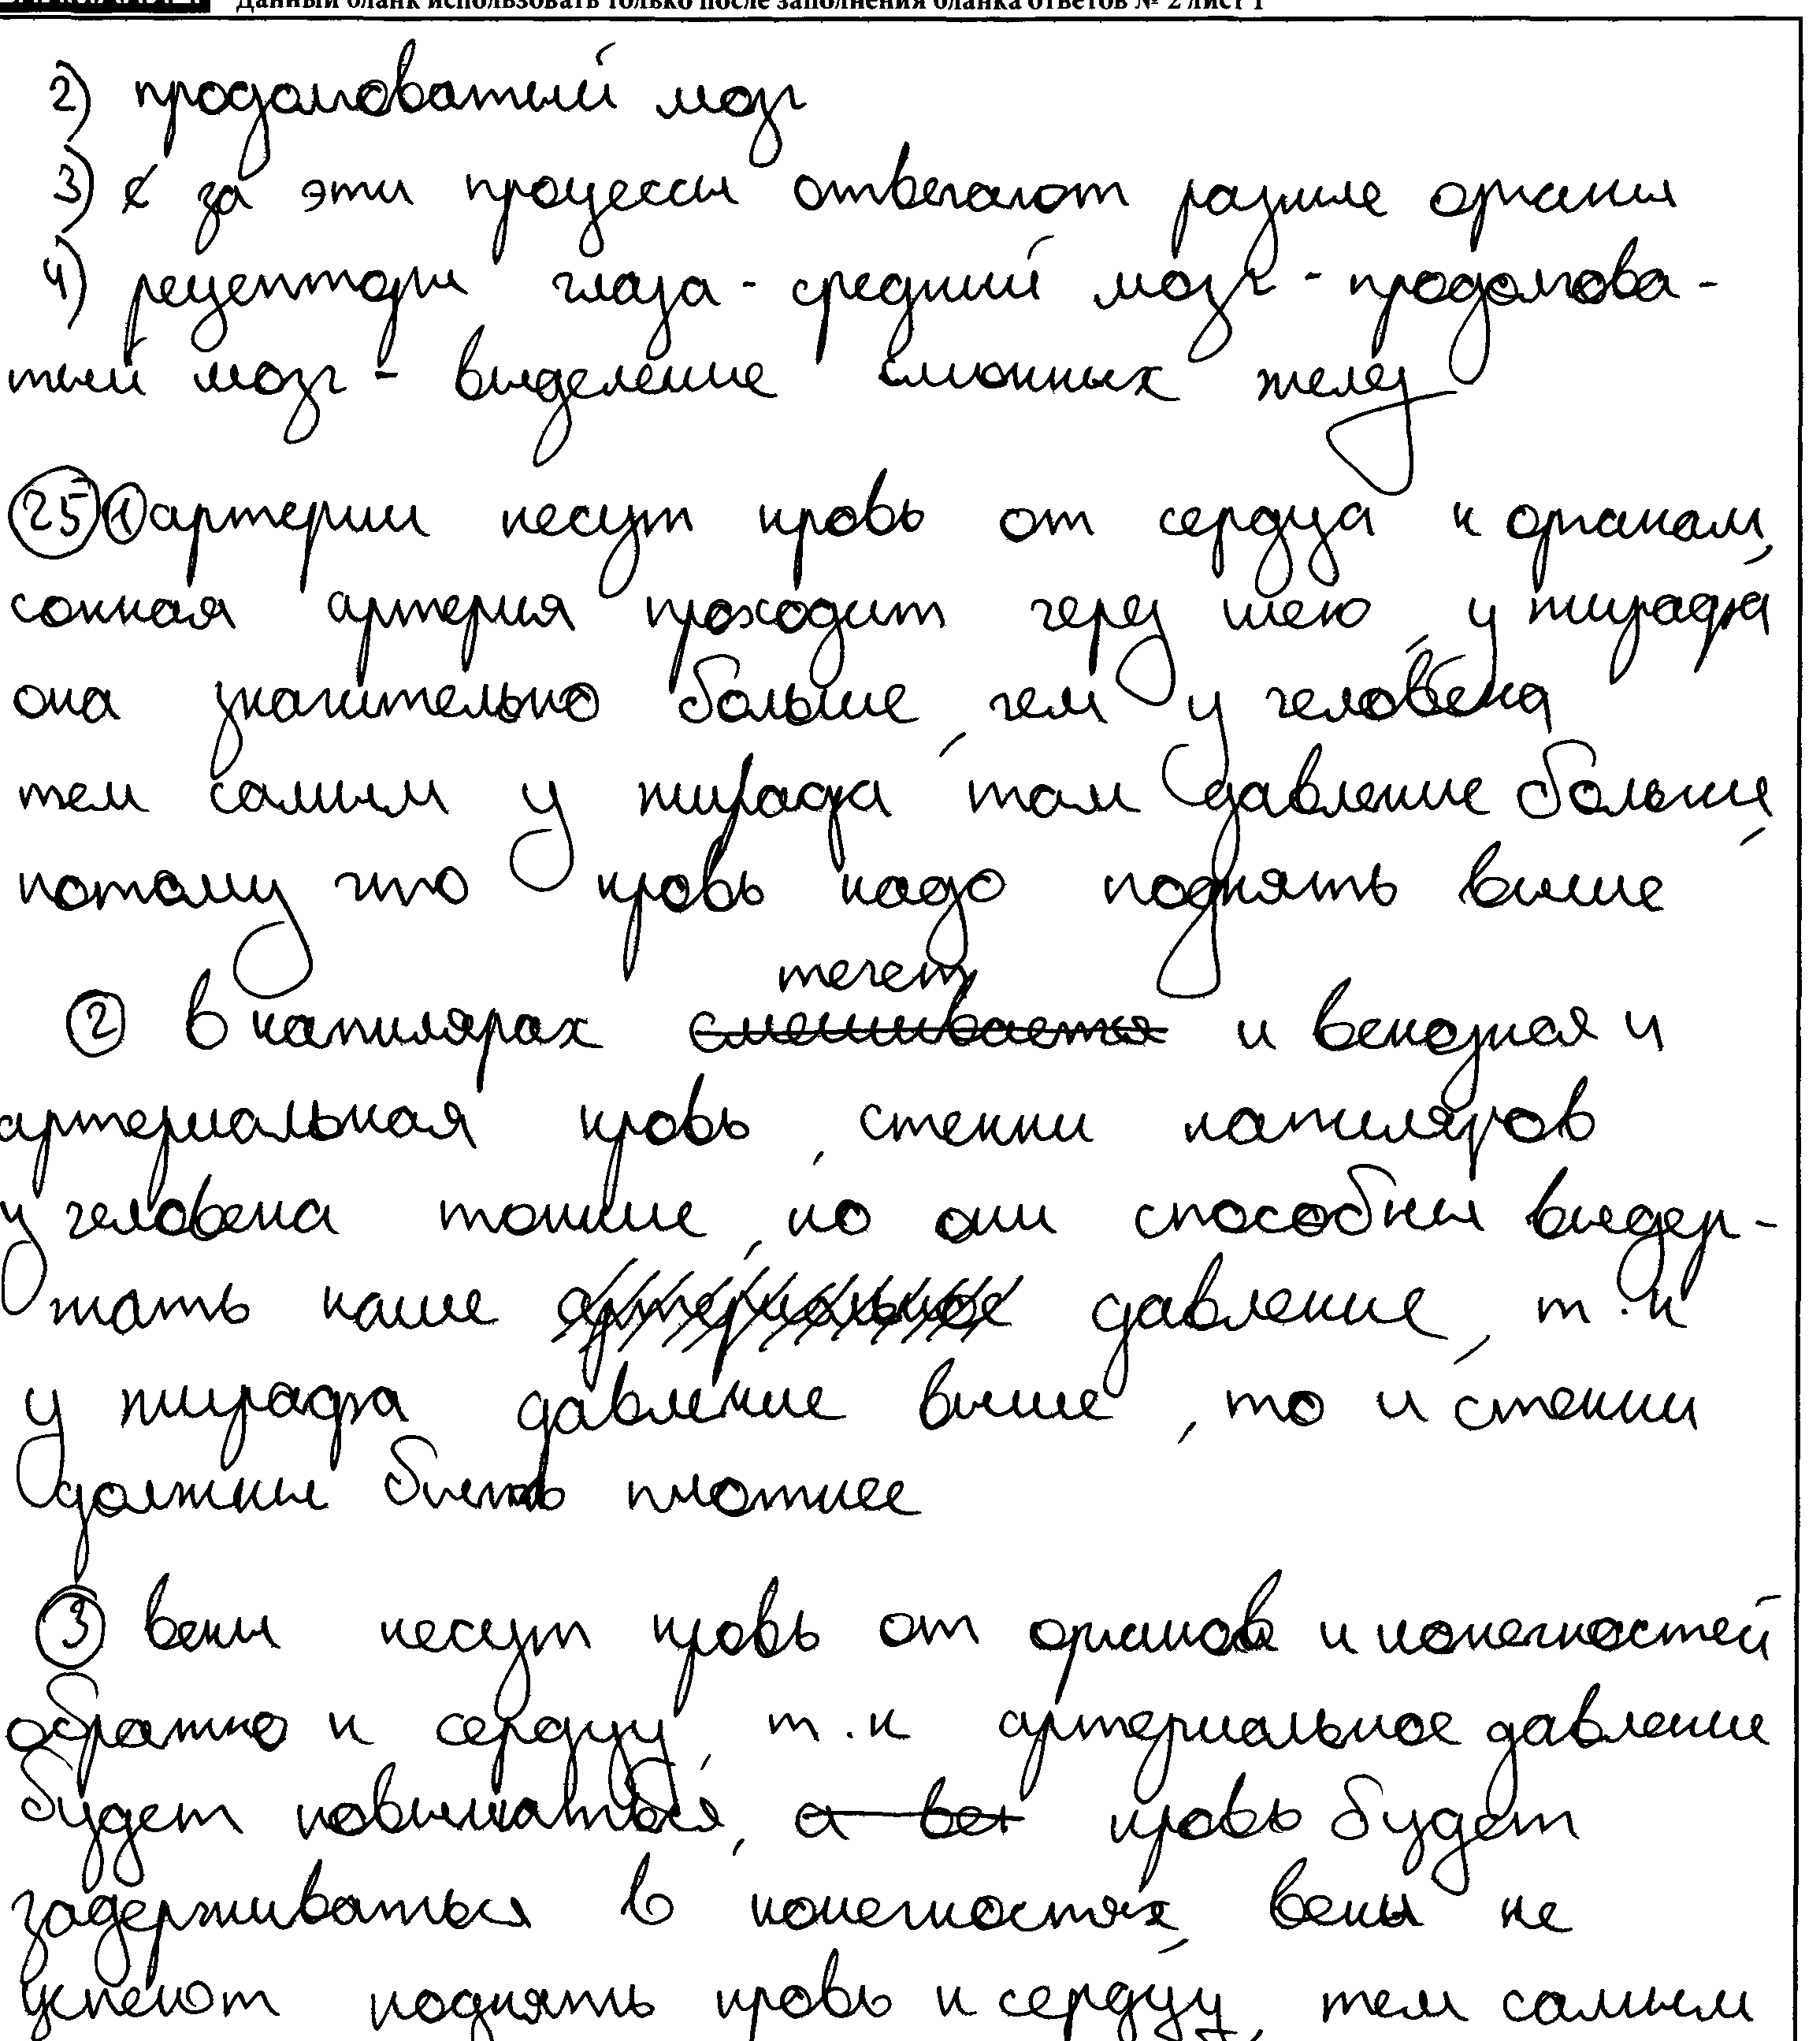 Данный бланк использовать только после заполнения бланка ответов № 2 лист 1
2) продолговатый мозг
3) за эти процессы отвечают разные органы
4) рецепторы глаза - средний мозг - продолгова-
тый мозг - выделение слюнных желез
25 1 артерии несут кровь от сердца к органам,
сонная артерия проходит через шею, у жирафа
она значительно больше, чем у человека
тем самым у жирафа там давление больше,
потому что кровь надо поднять выше
течет
2 в капилярах смешивается и венозная и
артериальная кровь, стенки капиляров
у человека тонкие, но они способны выдер-
жать наше артериальное давление, т.к
у жирафа давление выше, то и стенки
должны быть плотнее
3 вены несут кровь от органов и конечностей
обратно к сердцу, т.к артериальное давление
будет повышаться, а вен кровь будет
задерживаться в конечностях, вены не
успеют поднять кровь к сердцу, тем самым